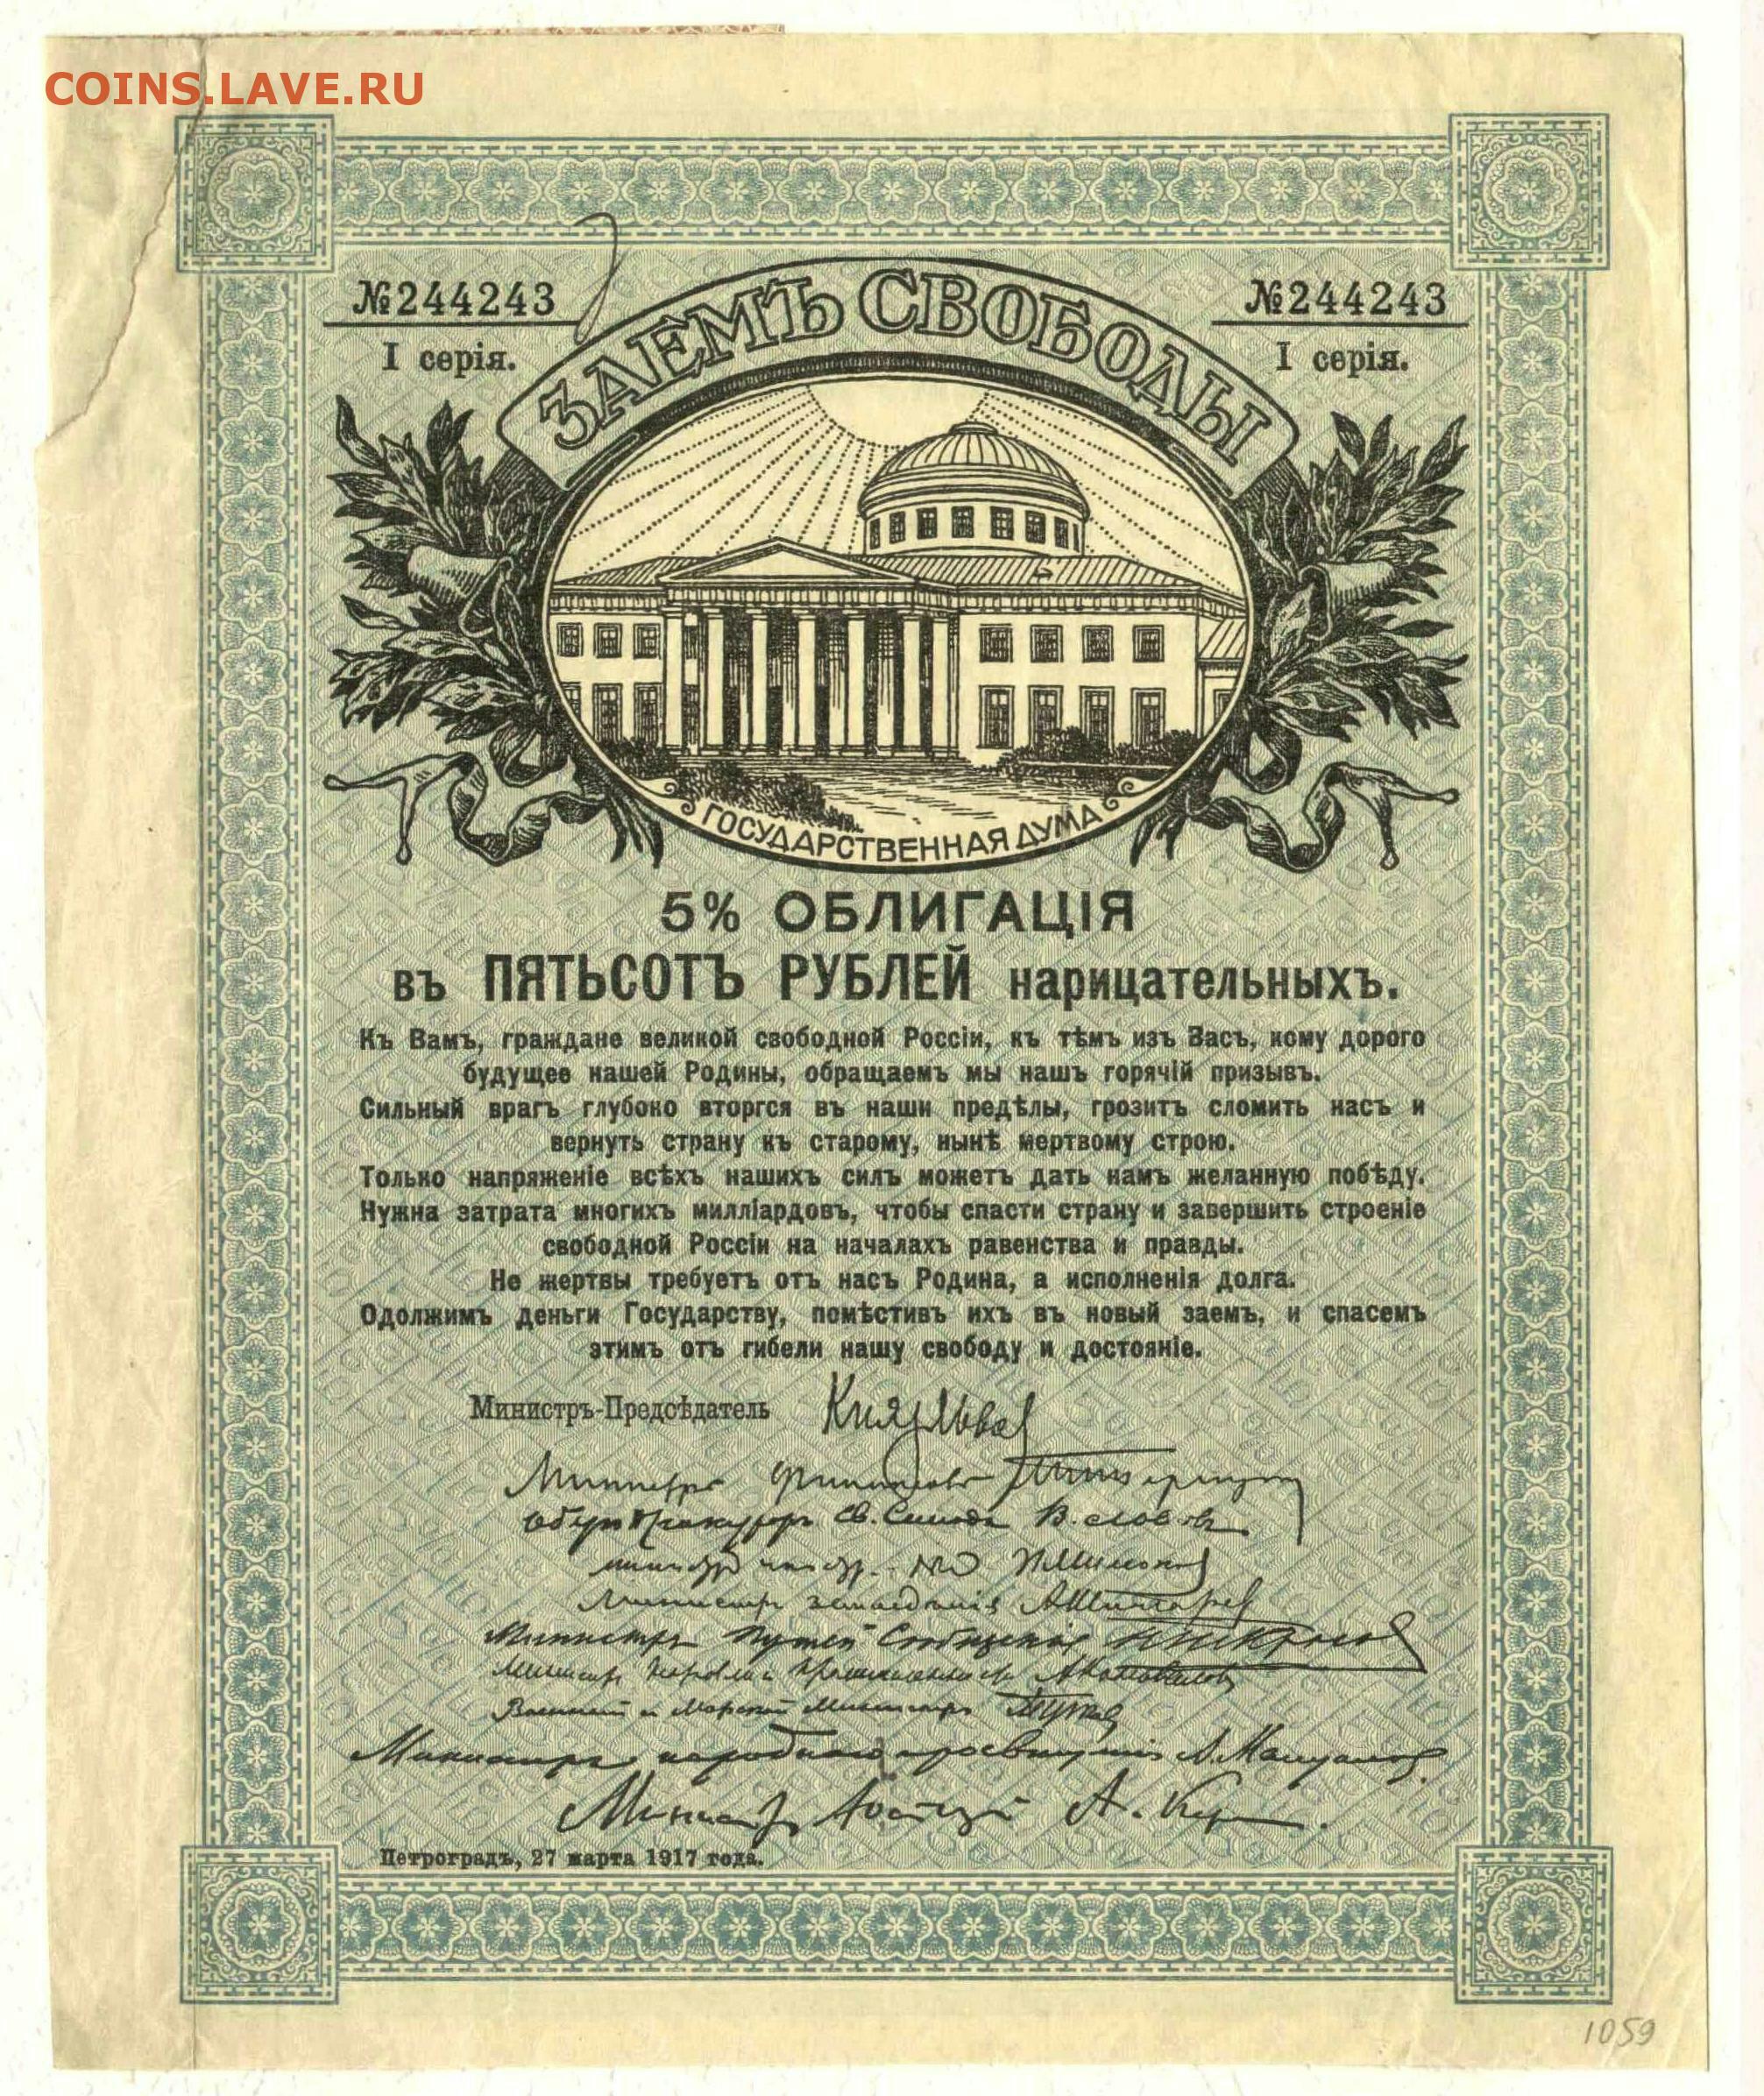 COINS.LAVE.RU
№244243
№244243
I серія.
I серія.
ЗАЕМЪ СВОБОДЫ
ГОСУДАРСТВЕННАЯ ДУМА
5% ОБЛИГАЦІЯ
въ ПЯТЬСОТЪ РУБЛЕЙ нарицательныхъ.
Къ Вамъ, граждане великой свободной Россіи, къ тѣмъ изъ Васъ, кому дорого
будущее нашей Родины, обращаемъ мы нашъ горячій призывъ.
Сильный врагъ глубоко вторгся въ наши предѣлы, грозитъ сломить насъ и
вернуть страну къ старому, нынѣ мертвому строю.
Только напряженіе всѣхъ нашихъ силъ можетъ дать намъ желанную побѣду.
Нужна затрата многихъ милліардовъ, чтобы спасти страну и завершить строеніе
свободной Россіи на началахъ равенства и правды.
Не жертвы требуетъ отъ насъ Родина, а исполненія долга.
Одолжимъ деньги Государству, помѣстивъ ихъ въ новый заемъ, и спасемъ
этимъ отъ гибели нашу свободу и достояніе.
Министръ-Предсѣдатель Князь Львов
Министръ Финансовъ
Оберъ Прокуроръ Св. Синода В. Львовъ
Министръ земледѣлія А Шингарев
Министръ Путей Сообщенія
Министръ Торговли и Промышленности А Коноваловъ
Военный и Морской Министръ
Министръ народнаго просвѣщенія А. Мануйлов
Министръ Юстиціи А. Кер
Петроградъ, 27 марта 1917 года.
1059